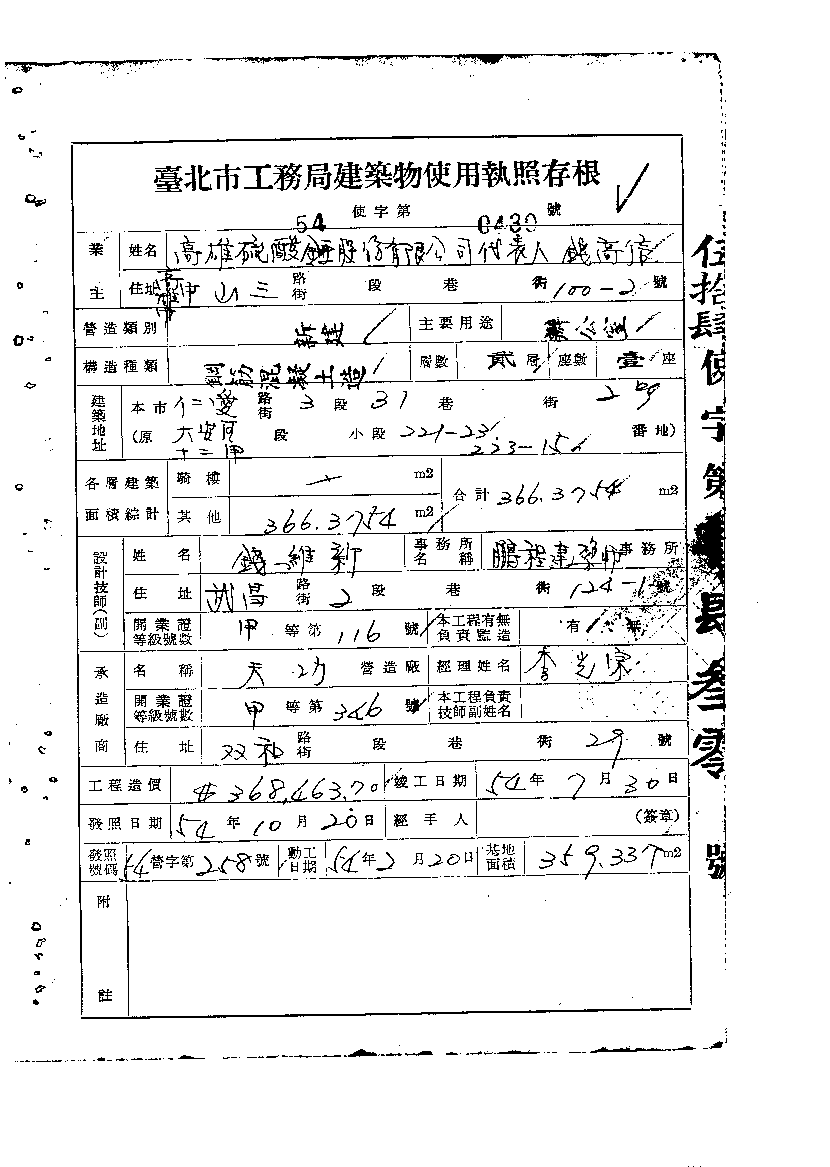 臺北市工務局建築物使用執照存根
54 使字第 0430 號
業主 姓名 高雄硫酸錏股份有限公司代表人 錢高信
住址 高雄市中山三路街 段 巷 街 100-2 號
營造類別 新建 主要用途 辦公
構造種類 鋼筋混凝土造 層數 貳層 座數 壹座
建築地址 本市 仁愛路街 3 段 31 巷 街 2 號
(原 大安 十二甲 段 小段 221-23 223-15 番地)
各層建築面積綜計 騎樓 m2 合計 366.3754 m2
其他 366.3754 m2
設計技師(副) 姓名 錢維新 事務所名稱 鵬程建築師事務所
住址 武昌路街 2 段 巷 街 124-1 號
開業證等級號數 甲 等第 116 號 本工程有無負責監造 有 無
承造廠商 名稱 天功 營造廠 經理姓名 李光
開業證等級號數 甲 等第 346 號 本工程負責技師副姓名
住址 双和路街 段 巷 街 29 號
工程造價 $368,463.70 竣工日期 54年 7月 30日
發照日期 54年 10月 20日 經手人 (簽章)
發照號碼 54營字第 258號 動工日期 54年 2月 20日 基地面積 359.337 m2
附註
伍拾肆使字第 肆叁零 號